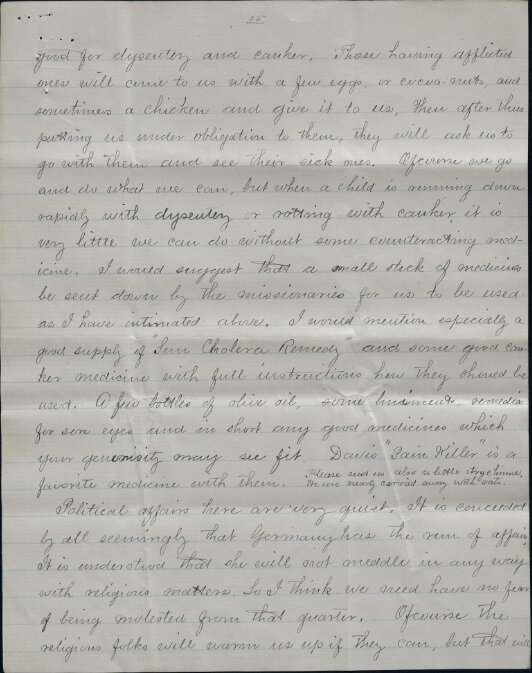 15
good for dysentery and canker. Those having afflicted
ones will come to us with a few eggs, or cocoa-nuts, and
sometimes a chicken and give it to us, then after thus
putting us under obligation to them, they will ask us to
go with them and see their sick ones. Ofcourse we go
and do what we can, but when a child is running down
rapidly with dysentery or rotting with canker, it is
very little we can do without some counteracting med-
icine. I would suggest that a small stock of medicine
be sent down by the missionaries for us to be used
as I have intimated above. I would mention especially a
good supply of "Sun Cholera Remedy" and some good can-
ker medicine with full instructions how they should be
used. A few bottles of olive oil, some liniments, remedies
for sore eyes and in short any good medicines which
your generosity may see fit. Davis' "Pain Killer" is a
favorite medicine with them. Please send us also a little strychnine.
We are nearly carried away with rats.
Political affairs here are very quiet. It is conceded
by all seemingly that Germany has the run of affairs.
It is understood that she will not meddle in any way
with religious matters. So I think we need have no fear
of being molested from that quarter. Ofcourse the
religious folks will warm us up if they can, but that will